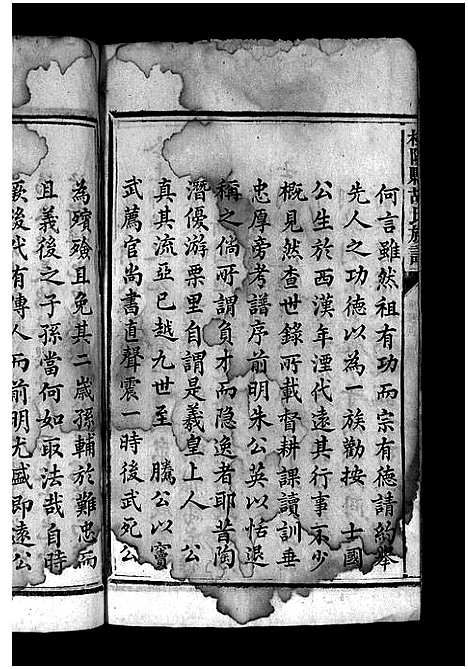 何言雖然祖有功而宗有德請約舉
先人之功德以為一族勸按 士國
公生於西漢年湮代遠其行事不少
概見然查世錄所載督耕課讀訓垂
忠厚旁考譜序前明朱公英以恬退
稱之倘所謂負才而隐逸者耶昔陶
潛優游栗里自謂是羲皇上人 公
真其流亞已越九世至 騰公以竇
武薦官尚書直聲震一時後武死公
為殯殮且免其二歲孫輔於難忠而
且義後之子孫當何如取法哉自時
厥後代有傳人而前明尤盛即遠公